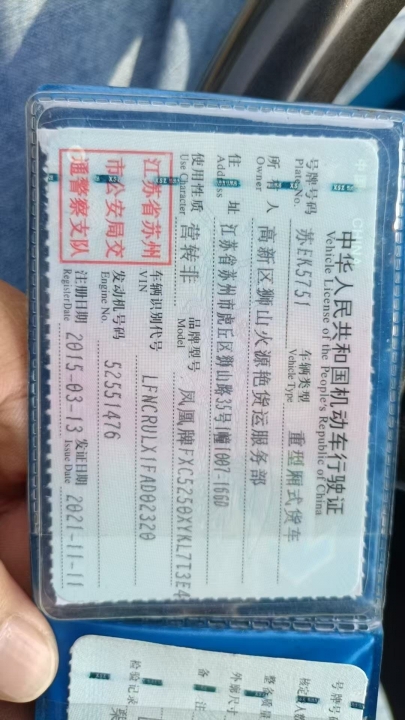 中华人民共和国机动车行驶证
Vehicle License of the People's Republic of China
号牌号码 苏EK5751 车辆类型 重型厢式货车
Plate No. Vehicle Type
所有人 高新区狮山火源艳货运服务部
Owner
住址 江苏省苏州市虎丘区狮山路35号1幢1007-166D
Address
使用性质 营转非 品牌型号 凤凰牌FXC5250XYKL7T3E4
Use Character Model
江苏省苏州
市公安局交
通警察支队
车辆识别代号 LFNCRULX1FAD02320
VIN
发动机号码 52551476
Engine No.
注册日期 2015-03-13 发证日期 2021-11-11
Register Date Issue Date
号牌号
整备质量
外廓尺寸
备注
检验记录